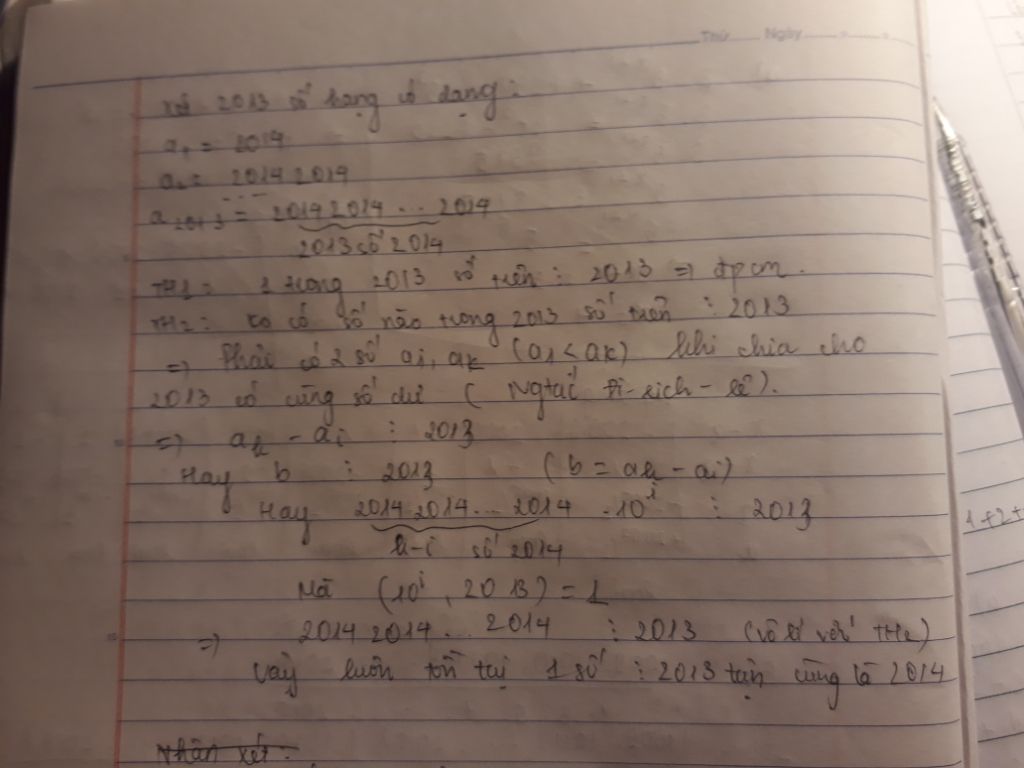 Thứ Ngày
Xét 2013 số hạng có dạng:
a₁ = 2014
a₂ = 2014 2014
...
a₂₀₁₃ = 2014 2014 ... 2014
2013 số 2014
TH1: 1 trong 2013 số trên ⋮ 2013 => đpcm.
TH2: ko có số nào trong 2013 số trên ⋮ 2013
=> Phải có 2 số aᵢ, aₖ (aᵢ < aₖ) khi chia cho
2013 có cùng số dư ( Ngtắc Đi-rich-lê).
=> aₖ - aᵢ ⋮ 2013
Hay b ⋮ 2013 (b = aₖ - aᵢ)
Hay 2014 2014 ... 2014 .10ⁱ ⋮ 2013
k-i số 2014
Mà (10ⁱ, 2013) = 1
=> 2014 2014 ... 2014 ⋮ 2013 (vô lí với TH2)
Vậy luôn tồn tại 1 số ⋮ 2013 tận cùng là 2014
Nhận xét:
1+2+